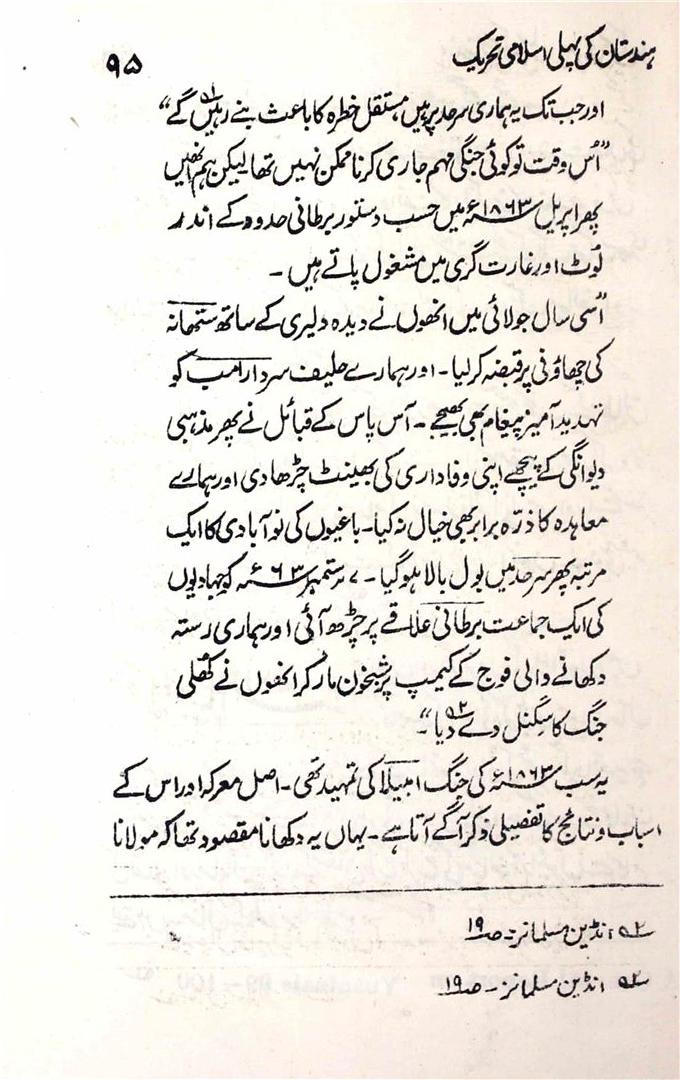 ہندستان کی پہلی اسلامی تحریک
۹۵
اور جب تک یہ ہماری سرحد پر ہیں مستقل خطرہ کا باعث بنے رہیں گے"
"اُس وقت تو کوئی جنگی مہم جاری کرنا ممکن نہیں تھا لیکن ہم انھیں
پھر اپریل ۱۸۶۳ء میں حسب دستور برطانی حدود کے اندر
لُوٹ اور غارت گری میں مشغول پاتے ہیں۔
"اُسی سال جولائی میں انھوں نے دیدہ دلیری کے ساتھ ستھانہ
کی چھاؤنی پر قبضہ کر لیا۔ اور ہمارے حلیف سردار امب کو
تہدید آمیز پیغام بھی بھیجے۔ آس پاس کے قبائل نے پھر مذہبی
دیوانگی کے پیچھے اپنی وفاداری کی بھینٹ چڑھا دی اور ہمارے
معاہدہ کا ذرّہ برابر بھی خیال نہ کیا۔ باغیوں کی نو آبادی کا ایک
مرتبہ پھر سرحد میں بول بالا ہو گیا۔ ۷ ستمبر ۶۳ء کو جہادیوں
کی ایک جماعت برطانی علاقے پر چڑھ آئی اور ہماری رستہ
دکھانے والی فوج کے کیمپ پر شبخون مار کر انھوں نے کھُلی
جنگ کا سگنل دے دیا ۵۲"۔
یہ سب ۱۸۶۳ء کی جنگ امبیلا کی تمہید تھی۔ اصل معرکہ اور اس کے
اسباب و نتائج کا تفصیلی ذکر آگے آتا ہے۔ یہاں یہ دکھانا مقصود تھا کہ مولانا
انڈین مسلمانز۔ ص ۱۹
۵۲ انڈین مسلمانز۔ ص ۱۹